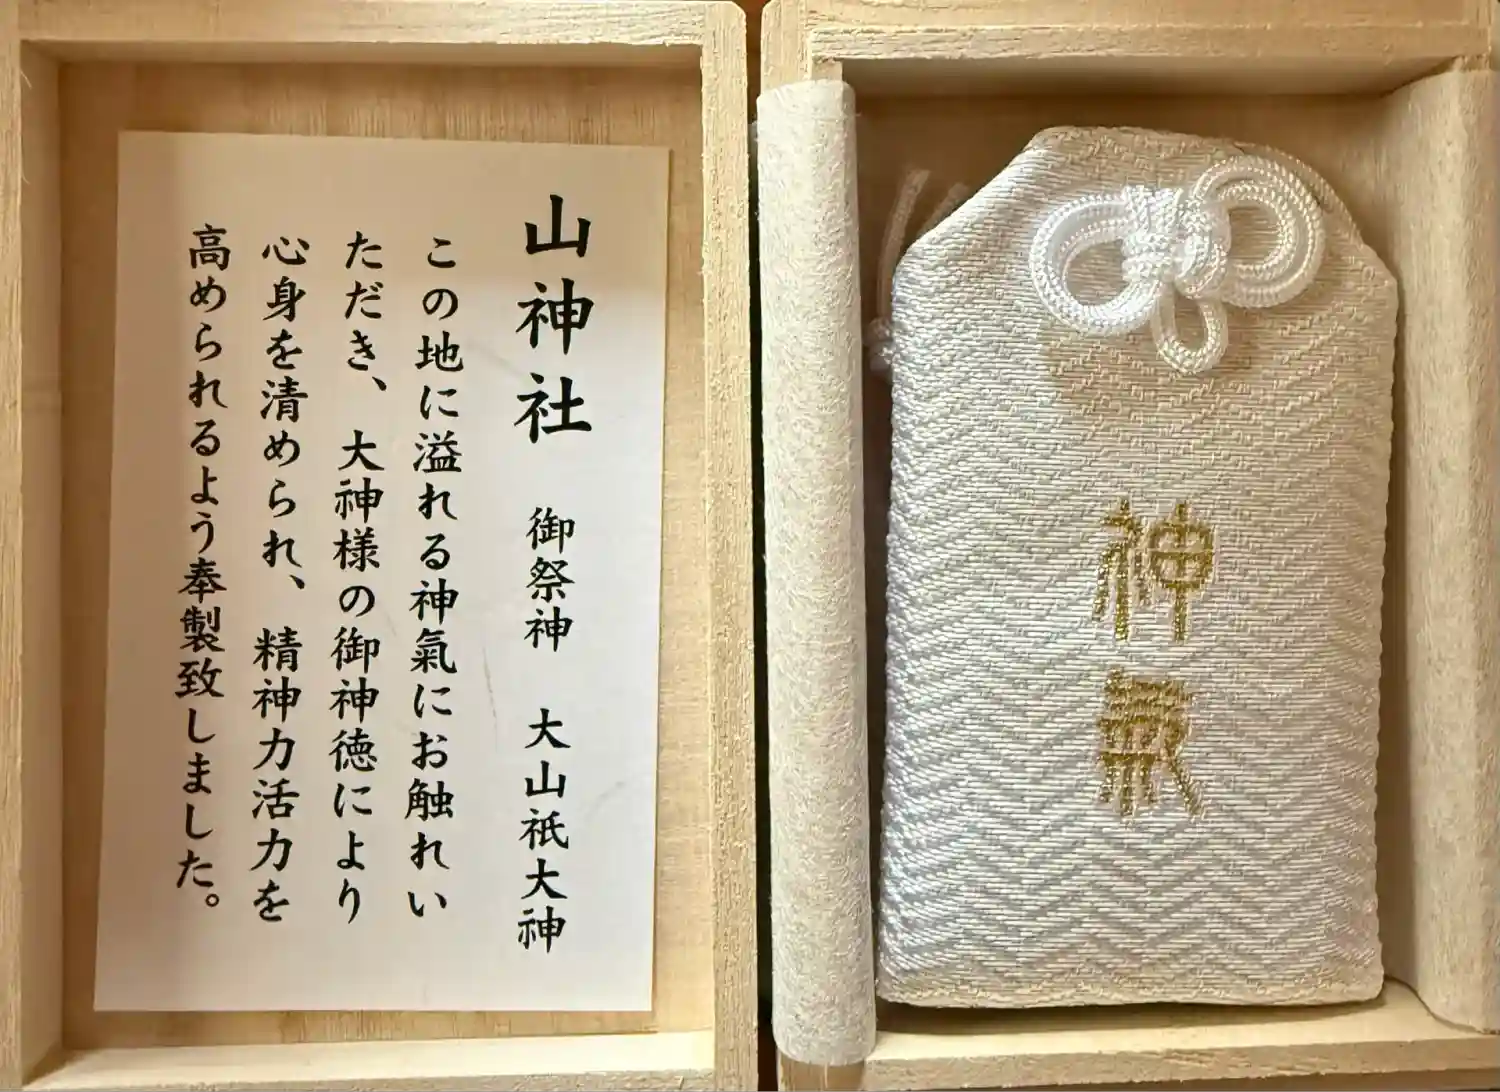 山神社　御祭神　大山祇大神
この地に溢れる神氣にお触れい
ただき、大神様の御神徳により
心身を清められ、精神力活力を
高められるよう奉製致しました。
神氣